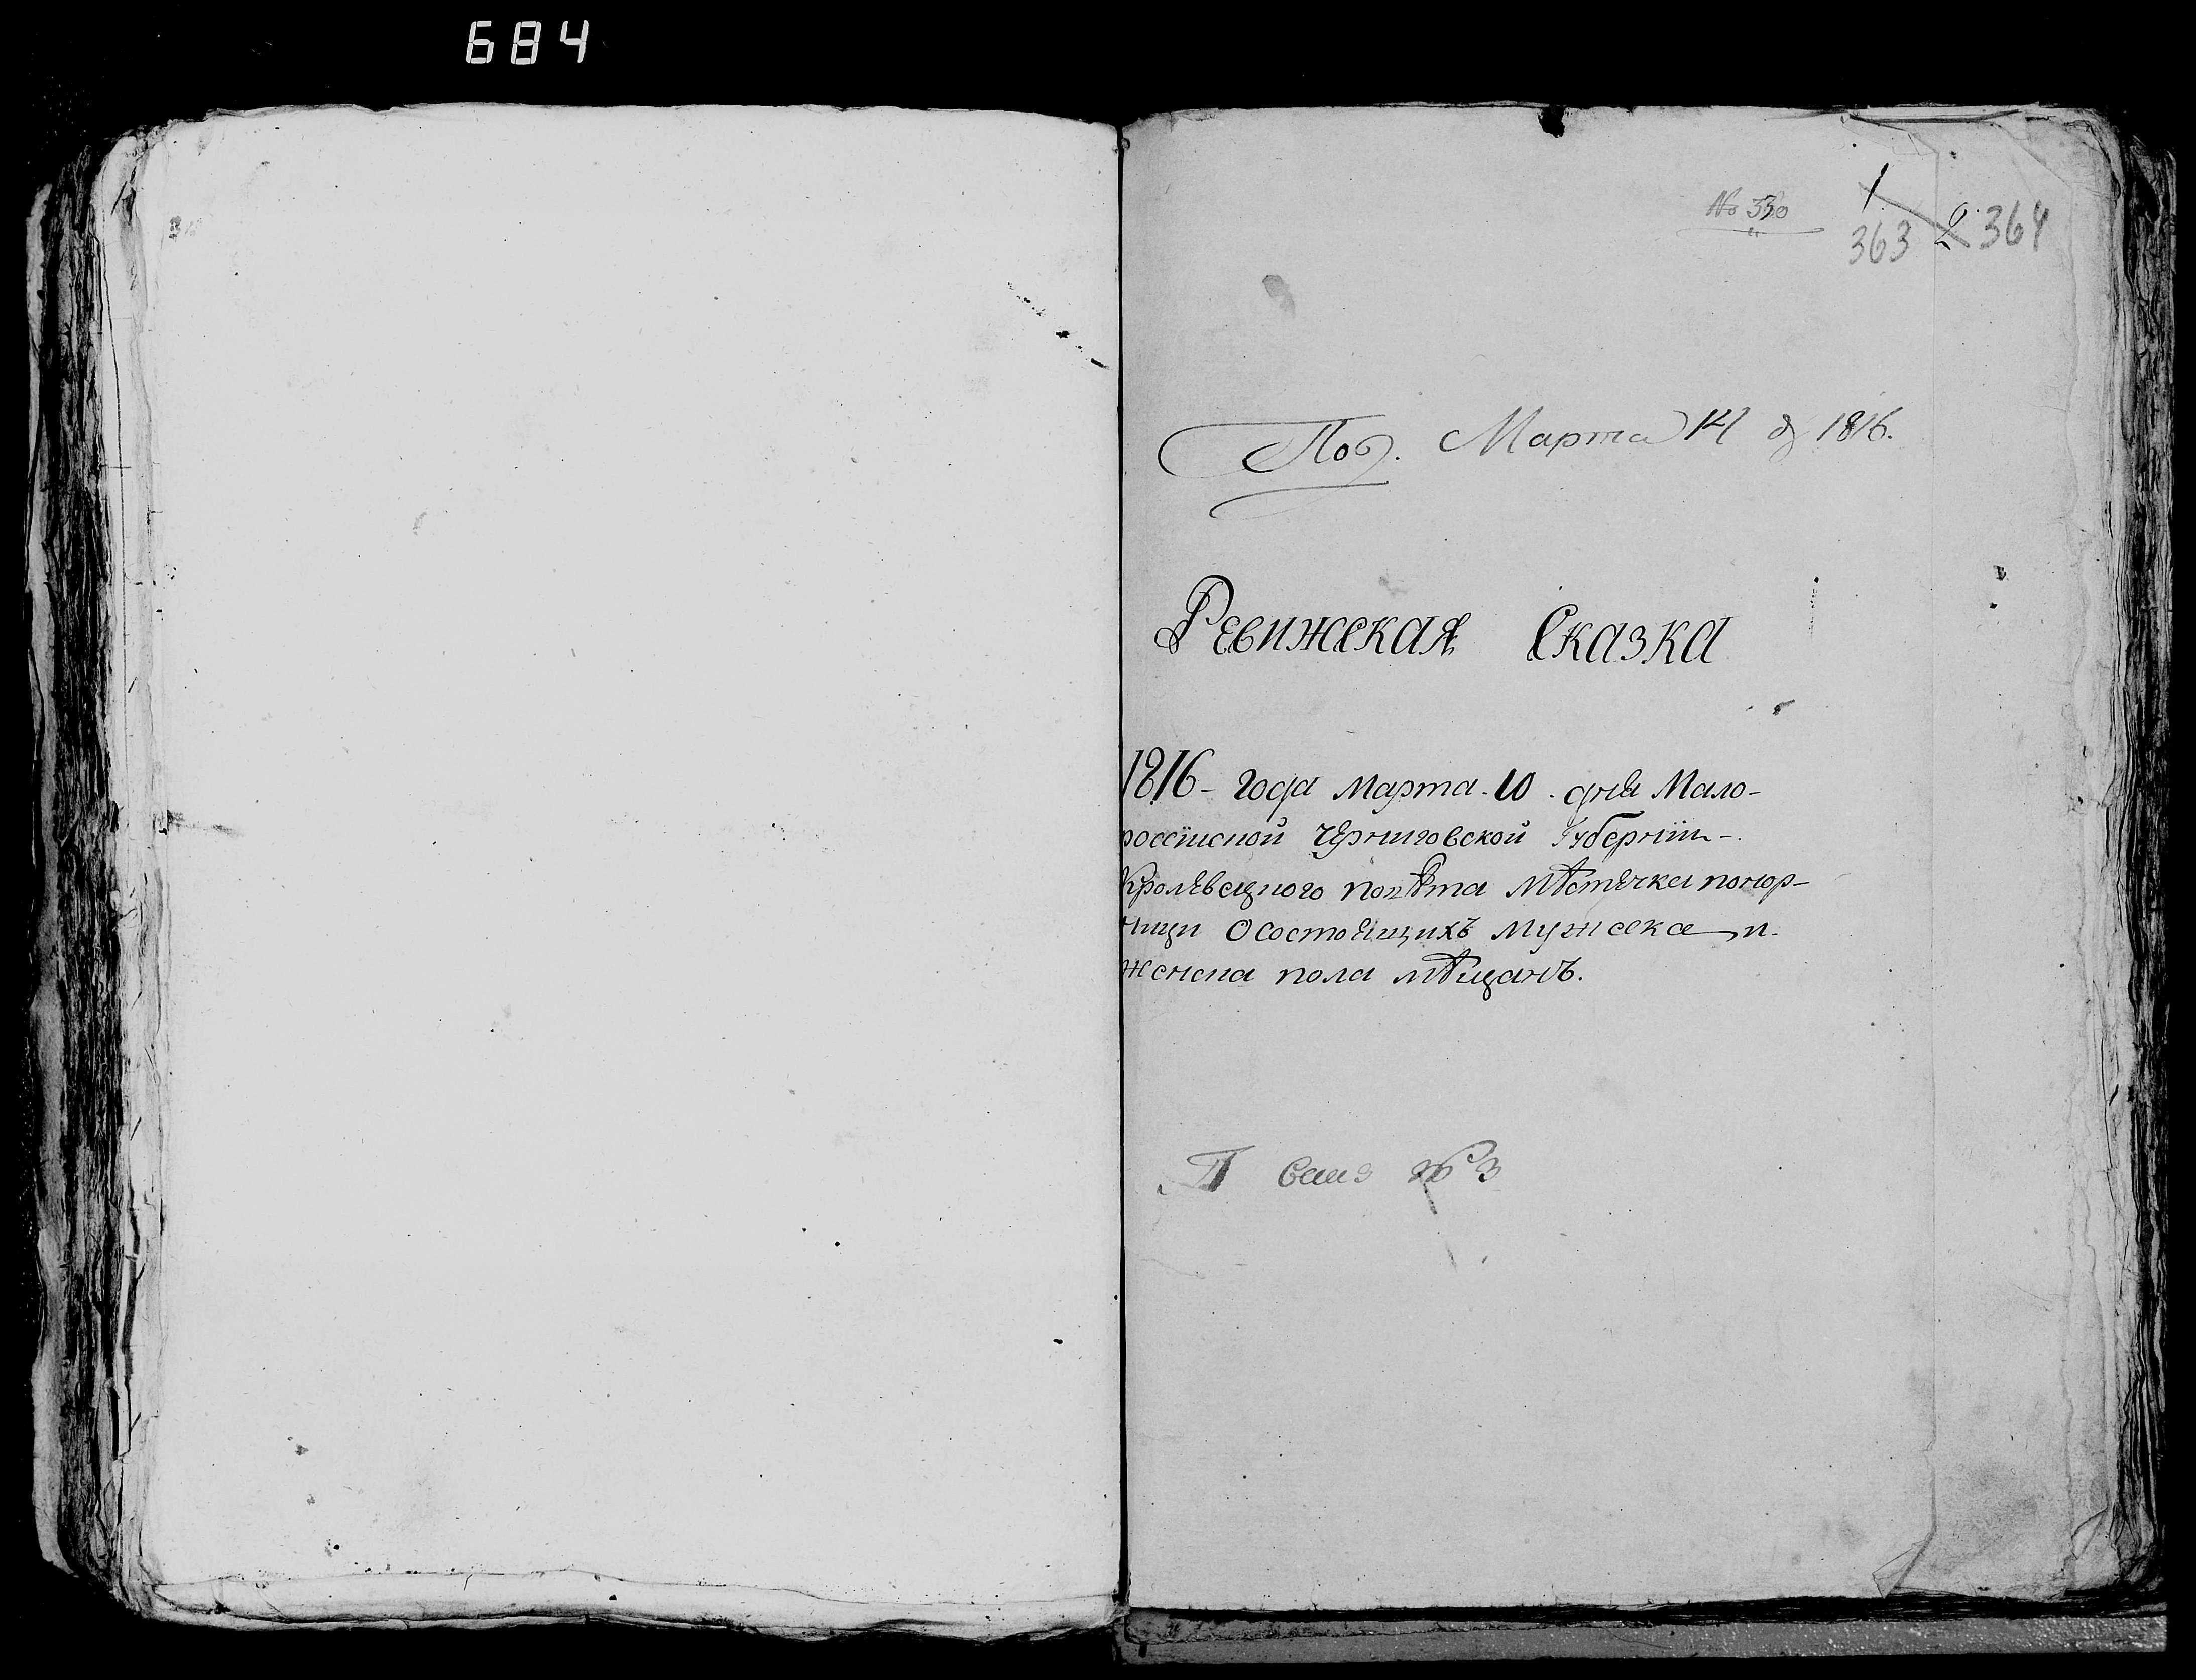 684
No 330
1
363 2 364
Под. Марта 14 д 1816.
Ревижская Сказка
1816 - года марта. 10. дня Мало-
россїиской черниговской Губернїи -.
Кролѣвецкого повѣта мѣстечка понор-
ници О состоящихъ мужеска и.
женска пола мѣщанъ.
№ 3